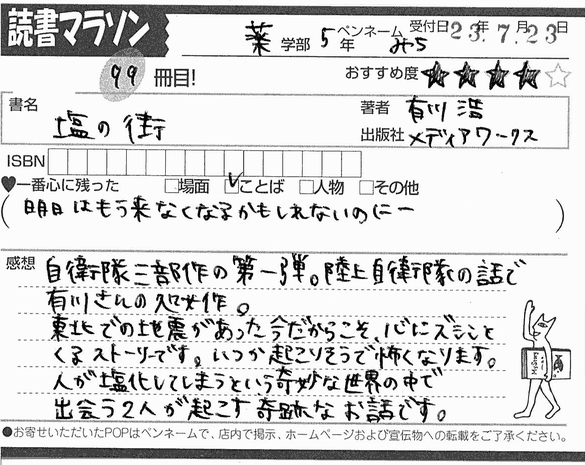 読書マラソン
薬 学部 5 年 ペンネーム みち 受付日 23年 7月 23日
99 冊目! おすすめ度 ★★★★☆
書名 塩の街
著者 有川 浩
出版社 メディアワークス
ISBN
♥一番心に残った □場面 ☑ことば □人物 □その他
(明日はもう来なくなるかもしれないのにー)
感想 自衛隊三部作の第一弾。陸上自衛隊の話で
有川さんの処女作。
東北での地震があった今だからこそ、心にズシンと
くるストーリーです。いつか起こりそうで怖くなります。
人が塩化してしまうという奇妙な世界の中で
出会う2人が起こす奇跡なお話です。
●お寄せいただいたPOPはペンネームで、店内で掲示、ホームページおよび宣伝物への転載をご了承ください。